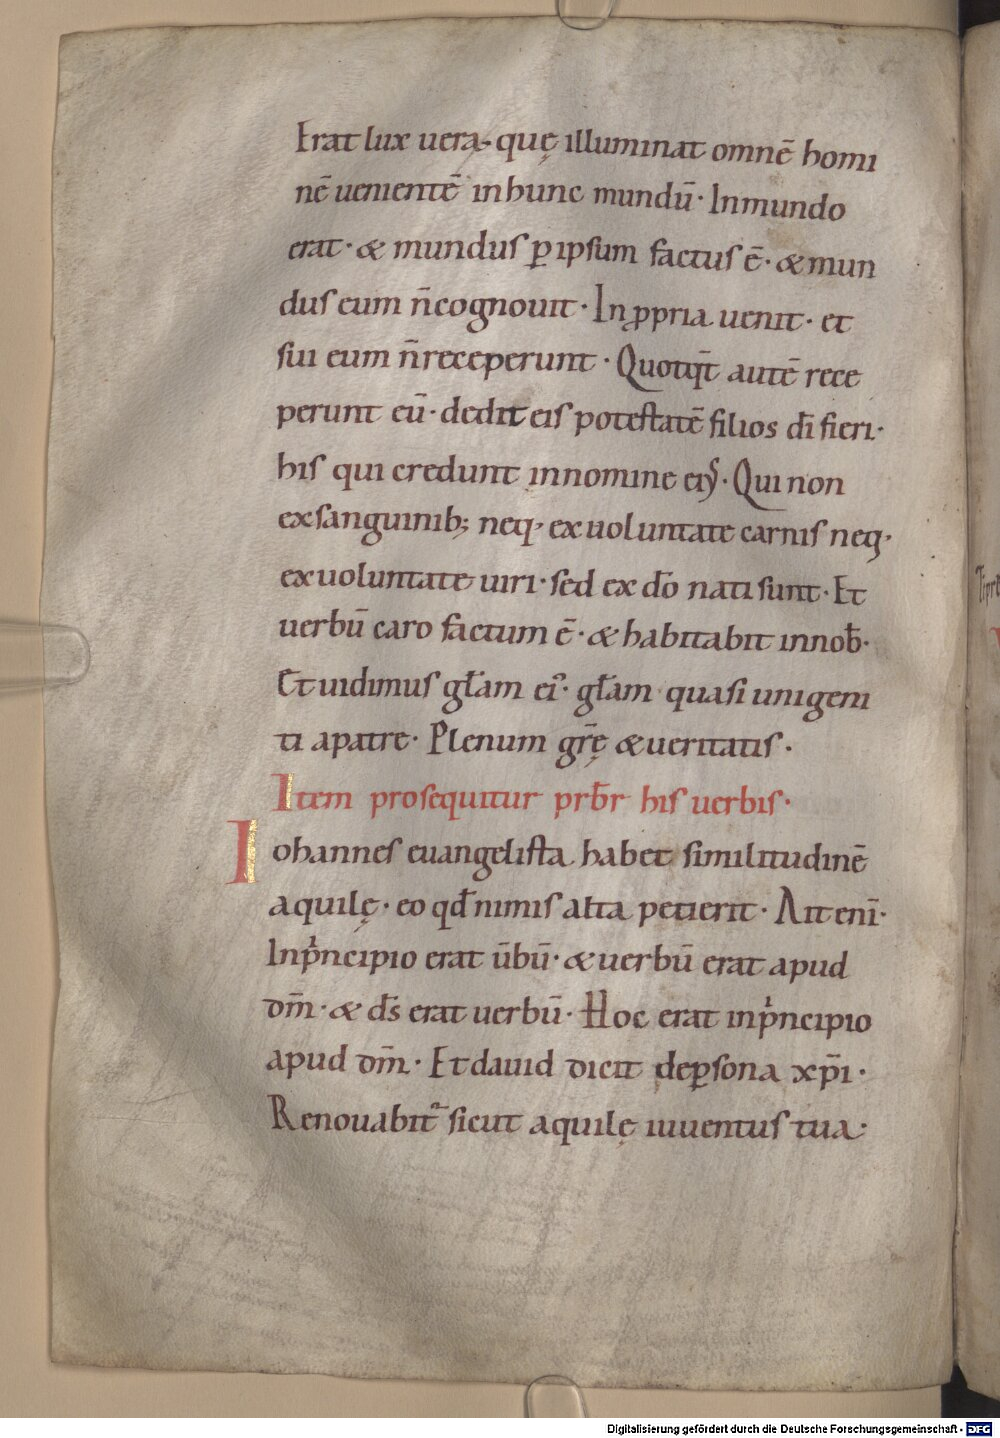 Erat lux uera· quę illuminat omnē homi
nē uenientē inhunc mundū· Inmundo
erat· & mundus ꝑ ipsum factus ē· & mun
dus eum n̄cognouit· In ꝓpria uenit· et
sui eum n̄receperunt· Quotq̄t autē rece
perunt eū· dedit eis potestatē filios dī fieri·
his qui credunt innomine eiꝰ· Qui non
exsanguinib; neq· exuoluntate carnis neq·
exuoluntate uiri· sed ex dō nati sunt· Et
uerbū caro factum ē· & habitabit innob̄·
Et uidimus gl̄am ei᾽· gl̄am quasi unigeni
ti apatre· Plenum gr̄ę & ueritatis·
Item prosequitur prb̄r his uerbis·
Iohannes euangelista habet similitudinē
aquilę· eo qd̄ nimis alta petierit· Ait enī·
Inpͥncipio erat ūbū· & uerbū erat apud
dm̄· & ds̄ erat uerbū· Hoc erat inpͥncipio
apud dm̄· Et dauid dicit deꝑsona xp̄i·
Renouabit᷑ sicut aquilę iuuentus tua·
Digitalisierung gefördert durch die Deutsche Forschungsgemeinschaft - DFG